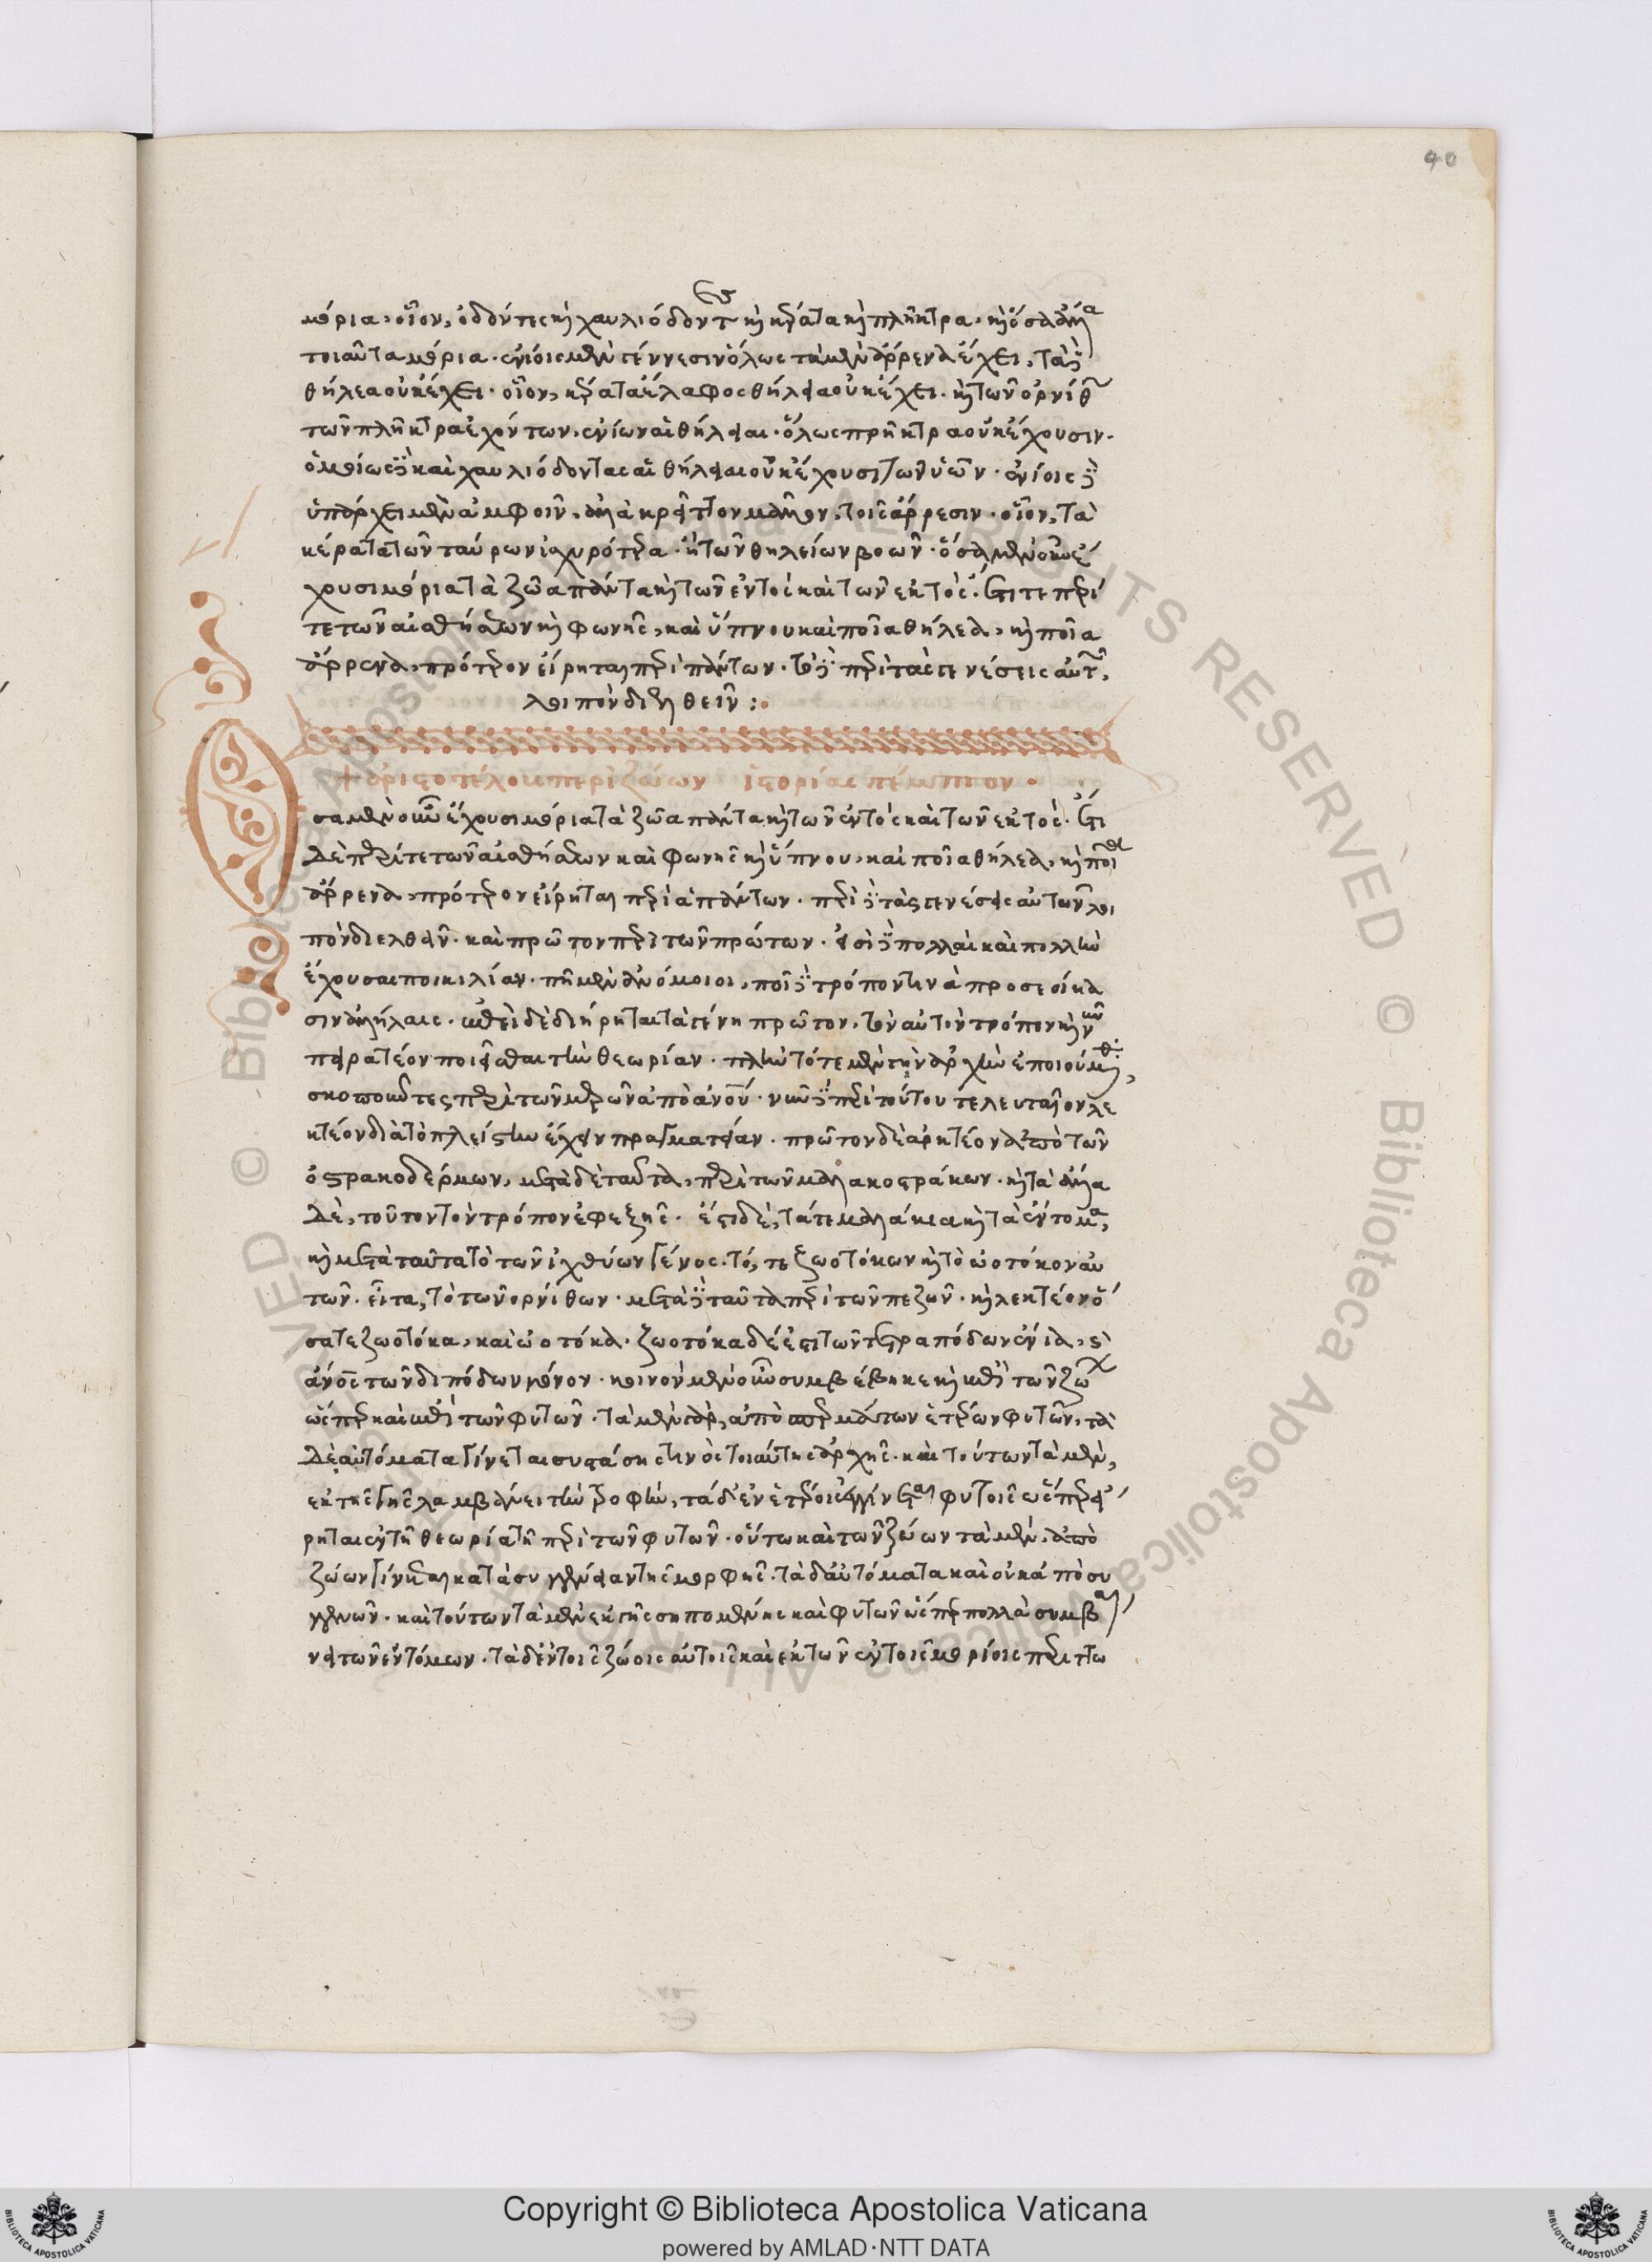 40
μόρια· οἷον, ὀδόντες καὶ χαυλιόδοντες καὶ κέρατα καὶ πλῆκτρα, καὶ ὅσα ἄλλα
τοιαῦτα μόρια. ἐνίοις μὲν γένεσιν ὅλως τὰ μὲν ἄρρενα ἔχει, τὰ δὲ
θήλεα οὐκ ἔχει· οἷον, κέρατα ἔλαφος θήλεια οὐκ ἔχει. καὶ τῶν ὀρνίθων
τῶν πλῆκτρα ἐχόντων, ἐνίων αἱ θήλειαι ὅλως πρῆκτρα οὐκ ἔχουσιν.
ὁμοίως δὲ καὶ χαυλιόδοντας αἱ θήλειαι οὐκ ἔχουσι τῶν ὑῶν. ἐνίοις δὲ
ὑπάρχει μὲν ἀμφοῖν, ἀλλὰ κρεῖττον μᾶλλον, τοῖς ἄρρεσιν· οἷον, τὰ
κέρατα τῶν ταύρων ἰσχυρότερα ἢ τῶν θηλείων βοῶν. ὅσα μὲν οὖν ἔ
χουσι μόρια τὰ ζῶα πάντα καὶ τῶν ἐντὸς καὶ τῶν ἐκτός· ἔτι τε περί
τε τῶν αἰσθήσεων καὶ φωνῆς, καὶ ὕπνου καὶ ποῖα θήλεα, καὶ ποῖα
ἄρρενα, πρότερον εἴρηται περὶ πάντων. τὸ δὲ περὶ τὰς γενέσεις αὐτῶν,
λοιπὸν διελθεῖν:
ἀριστοτέλους περὶ ζώων ἱστορίας πέμπτον.
Ὅσα μὲν οὖν ἔχουσι μόρια τὰ ζῶα πάντα καὶ τῶν ἐντὸς καὶ τῶν ἐκτός. ἔτι
δὲ περί τε τῶν αἰσθήσεων καὶ φωνῆς καὶ ὕπνου, καὶ ποῖα θήλεα, καὶ ποῖα
ἄρρενα, πρότερον εἴρηται περὶ ἁπάντων. περὶ δὲ τὰς γενέσεις αὐτῶν λοι
πὸν διελθεῖν. καὶ πρῶτον περὶ τῶν πρώτων. εἰσὶ δὲ πολλαὶ καὶ πολλὴν
ἔχουσαι ποικιλίαν. πῆ μὲν ἀνόμοιοι, ποῖ δὲ τρόπον τινὰ προσεοίκα
σιν ἀλλήλαις. ἐπεὶ δὲ διήρηται τὰ γένη πρῶτον, τὸν αὐτὸν τρόπον καὶ νῦν
πειρατέον ποιεῖσθαι τὴν θεωρίαν. πλὴν τότε μὲν τὴν ἀρχὴν ἐποιούμεθα,
σκοποῦντες περὶ τῶν μερῶν ἀπὸ ἀνοῦ. νῦν δὲ περὶ τούτου τελευταῖον λε
κτέον διὰ τὸ πλείστην ἔχειν πραγματείαν. πρῶτον δὲ ἀρκτέον ἀπὸ τῶν
ὀστρακοδέρμων, μετὰ δὲ ταῦτα, περὶ τῶν μαλακοστράκων. καὶ τὰ ἄλλα
δὲ, τοῦτον τὸν τρόπον ἐφεξῆς. ἔστι δὲ, τά τε μαλάκια καὶ τὰ ἔντομα,
καὶ μετὰ ταῦτα τὸ τῶν ἰχθύων γένος. τό, τε ζωοτόκων καὶ τὸ ὠοτόκον αὐ
τῶν. εἶτα, τὸ τῶν ὀρνίθων. μετὰ δὲ ταῦτα περὶ τῶν πεζῶν. καὶ λεκτέον ὅ
σα τε ζωοτόκα, καὶ ὠοτόκα. ζωοτόκα δέ ἐστι τῶν τετραπόδων ἔνια, καὶ
ἄνος τῶν διπόδων μόνον. κοινὸν μὲν οὖν συμβέβηκε καὶ ἐπὶ τῶν ζώων
ὥσπερ καὶ ἐπὶ τῶν φυτῶν. τὰ μὲν γὰρ, ἀπὸ σπερμάτων ἑτέρων φυτῶν, τὰ
δὲ αὐτόματα γίνεται συστάσης τινὸς τοιαύτης ἀρχῆς. καὶ τούτων τὰ μὲν,
ἐκ τῆς γῆς λαμβάνει τὴν τροφὴν, τὰ δ' ἐν ἑτέροις ἐγγίνεται φυτοῖς ὥσπερ εἴ
ρηται ἐν τῆ θεωρία τῆ περὶ τῶν φυτῶν. οὕτω καὶ τῶν ζώων τὰ μὲν, ἀπὸ
ζώων γίνεται κατὰ συγγένειαν τῆς μορφῆς. τὰ δ' αὐτόματα καὶ οὐκ ἀπὸ συ
γγενῶν. καὶ τούτων τὰ μὲν ἐκ γῆς σηπομένης καὶ φυτῶν ὥσπερ πολλὰ συμβαί
νει τῶν ἐντόμων. τὰ δ' ἐν τοῖς ζώοις αὐτοῖς καὶ ἐκ τῶν ἐν τοῖς μορίοις περιττω
Copyright © Biblioteca Apostolica Vaticana
powered by AMLAD·NTT DATA